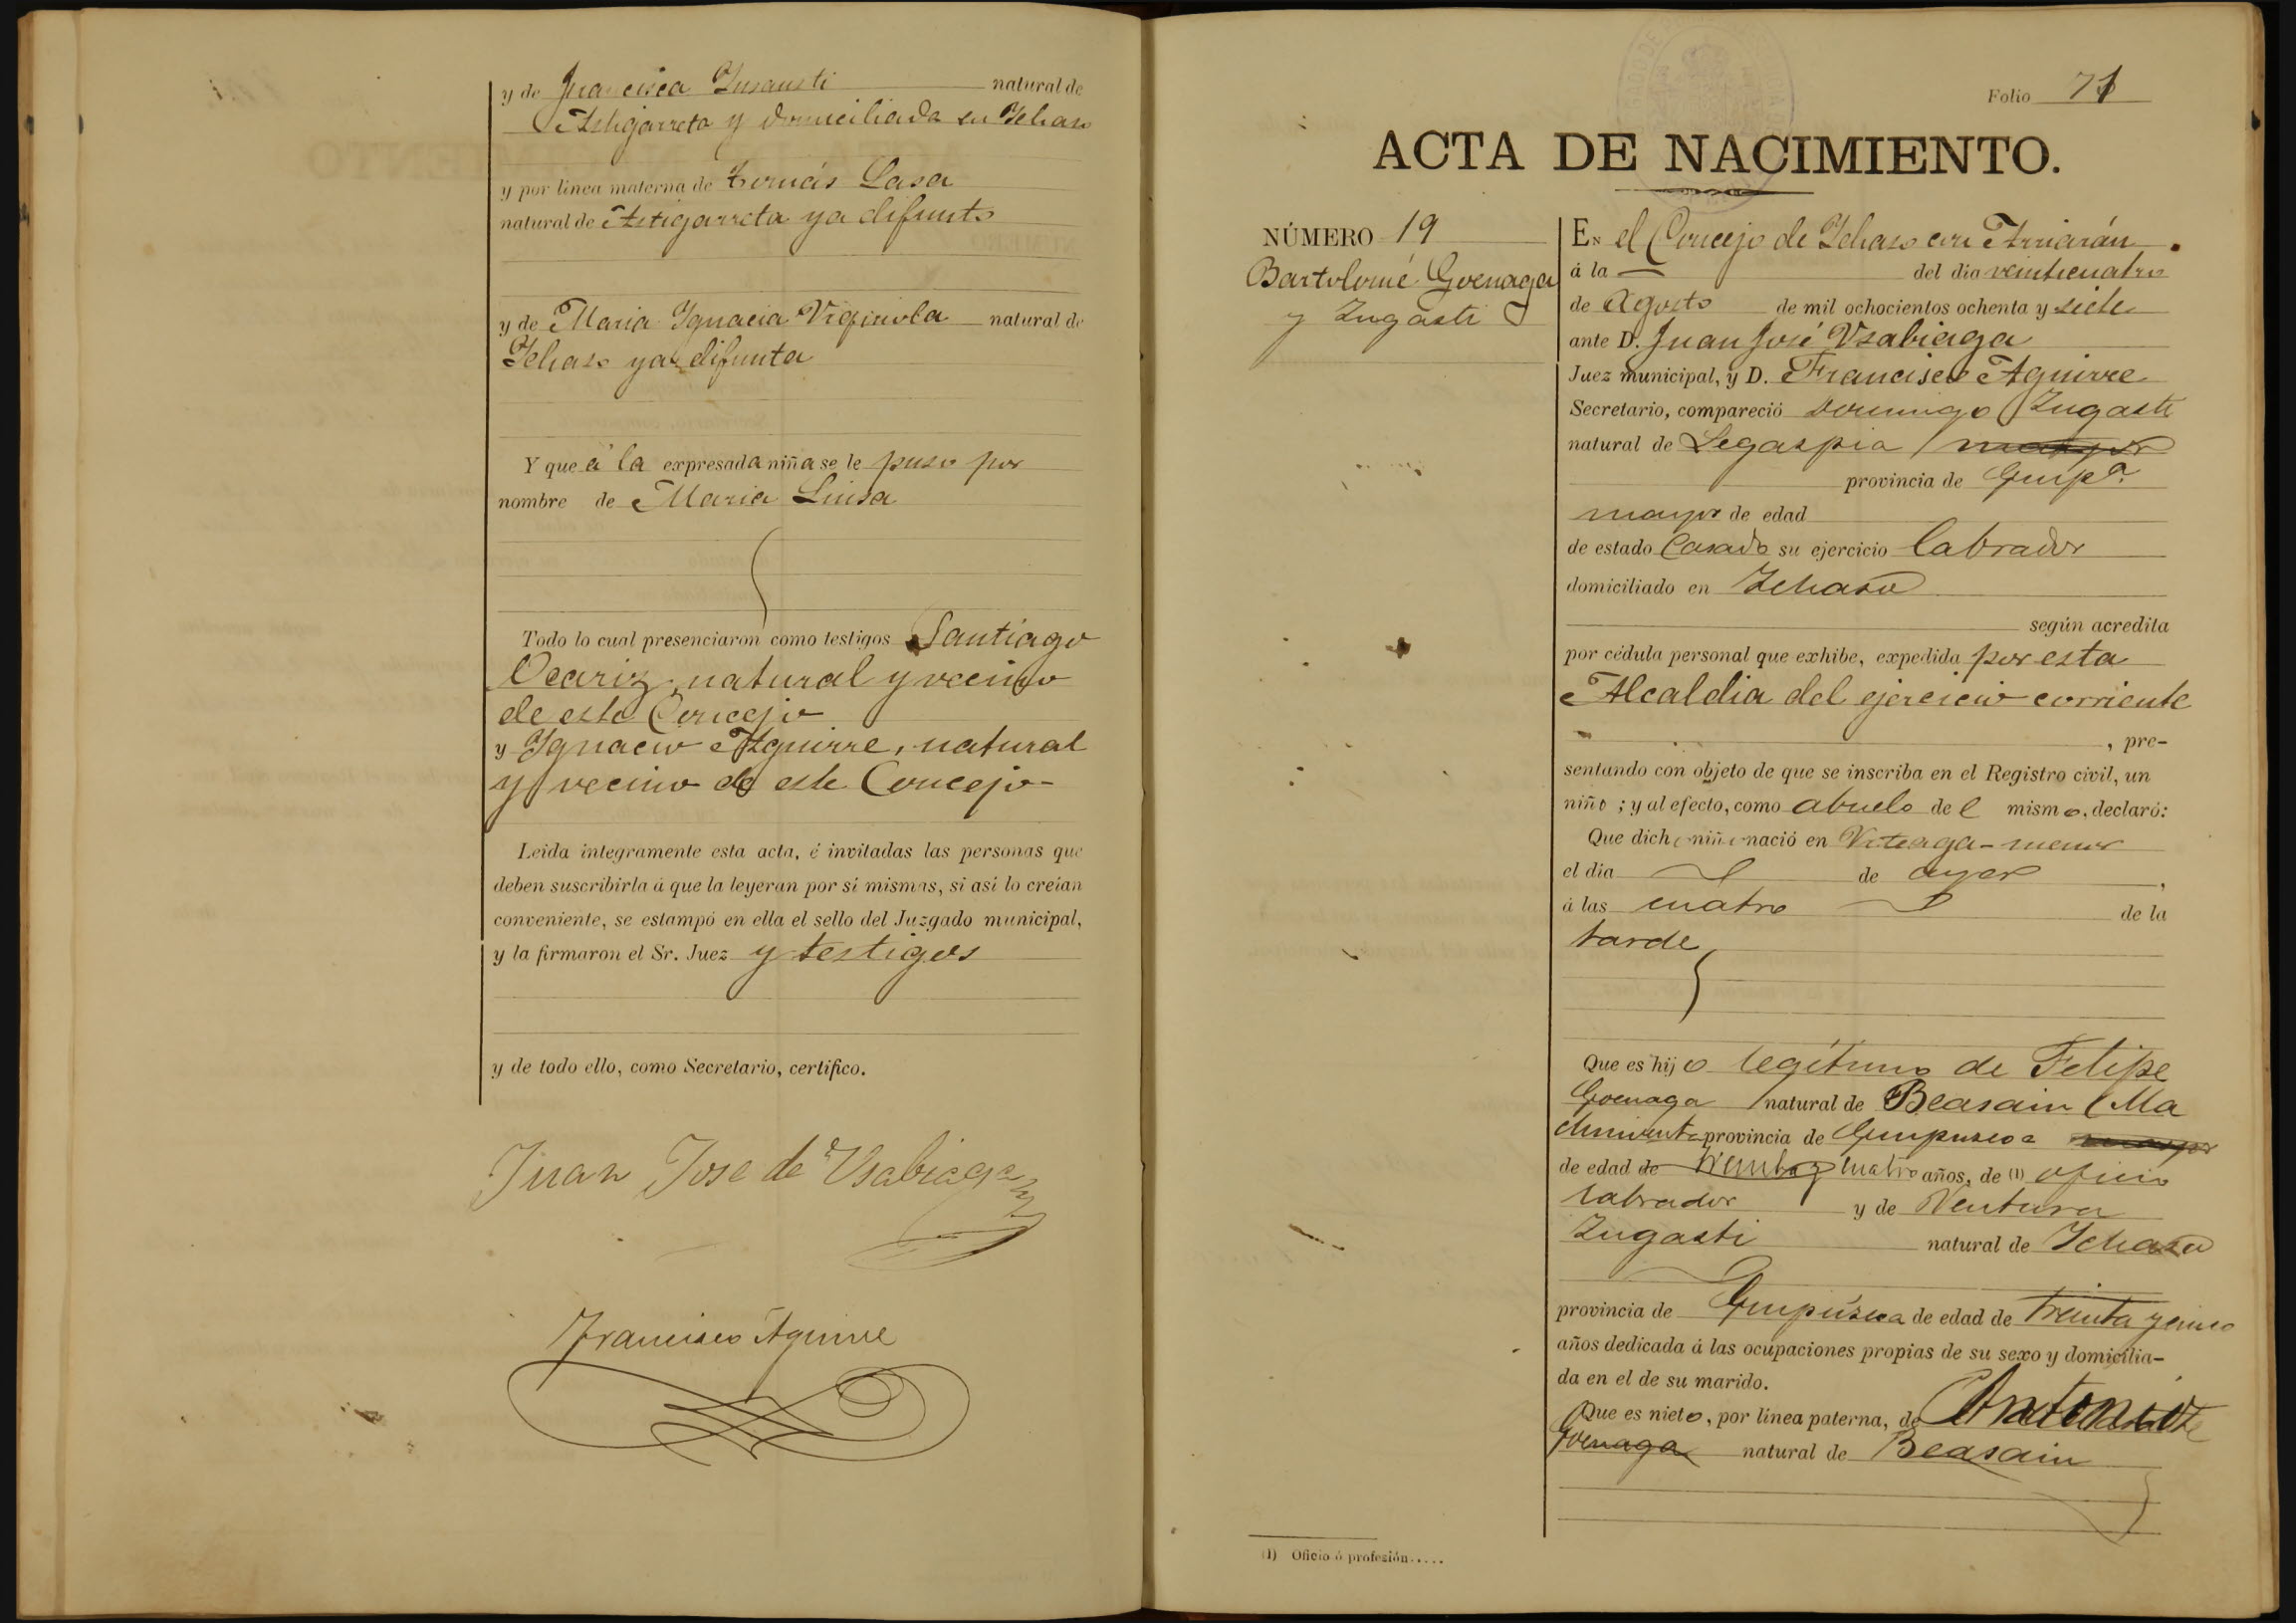 y de Francisca Insausti natural de
Astigarreta y domiciliada en Ichaso
y por línea materna de Tomás Lasa
natural de Astigarreta ya difunto
y de Maria Ignacia natural de
Ichaso ya difunta
Y que á la expresada niña se le puso por
nombre de Maria Luisa
Todo lo cual presenciaron como testigos Santiago
Ocariz, natural y vecino
de este Concejo
y Ignacio Aguirre, natural
y vecino de este Concejo
Leída íntegramente esta acta, é invitadas las personas que
deben suscribirla á que la leyeran por sí mismas, si así lo creían
conveniente, se estampó en ella el sello del Juzgado municipal,
y la firmaron el Sr. Juez y testigos
y de todo ello, como Secretario, certifico.
Juan Jose de Usabiaga
Francisco Aguirre
Folio 71
ACTA DE NACIMIENTO.
NÚMERO 19
Bartolomé Goenaga
y Zugasti
En el Concejo de Ichaso con Arriarán
á la del dia veinticuatro
de Agosto de mil ochocientos ochenta y siete
ante D. Juan José Usabiaga
Juez municipal, y D. Francisco Aguirre
Secretario, compareció Domingo Zugasti
natural de Legaspia mayor
provincia de Guipª.
mayor de edad
de estado Casado su ejercicio labrador
domiciliado en Ichaso
según acredita
por cédula personal que exhibe, expedida por esta
Alcaldia del ejercicio corriente
, pre-
sentando con objeto de que se inscriba en el Registro civil, un
niño ; y al efecto, como abuelo de l mismo, declaró:
Que dicho niño nació en menor
el día de ayer ,
á las cuatro de la
tarde
Que es hijo legítimo de Felipe
Goenaga natural de Beasain (Ma
provincia de Guipuzcoa mayor
de edad de treinta y cuatro años, de (1) oficio
labrador y de Ventura
Zugasti natural de Ichaso
provincia de Guipúzcoa de edad de treinta y cinco
años dedicada á las ocupaciones propias de su sexo y domicilia-
da en el de su marido.
Que es nieto, por línea paterna, de Antonio
Goenaga natural de Beasain
(1) Oficio ó profesión.....